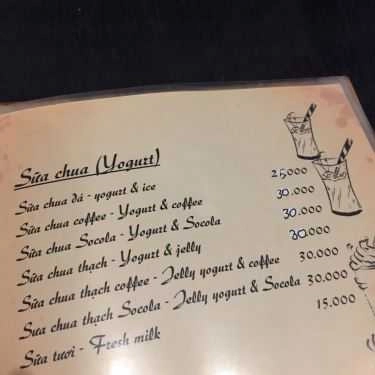 Sữa chua (Yogurt)
Sữa chua đá - yogurt & ice 25,000
Sữa chua coffee - Yogurt & coffee 30.000
Sữa chua Socola - Yogurt & Socola 30.000
Sữa chua thạch - Yogurt & jelly 30.000
Sữa chua thạch coffee - Jelly yogurt & coffee 30.000
Sữa chua thạch Socola - Jelly yogurt & Socola 30.000
Sữa tươi - Fresh milk 15.000